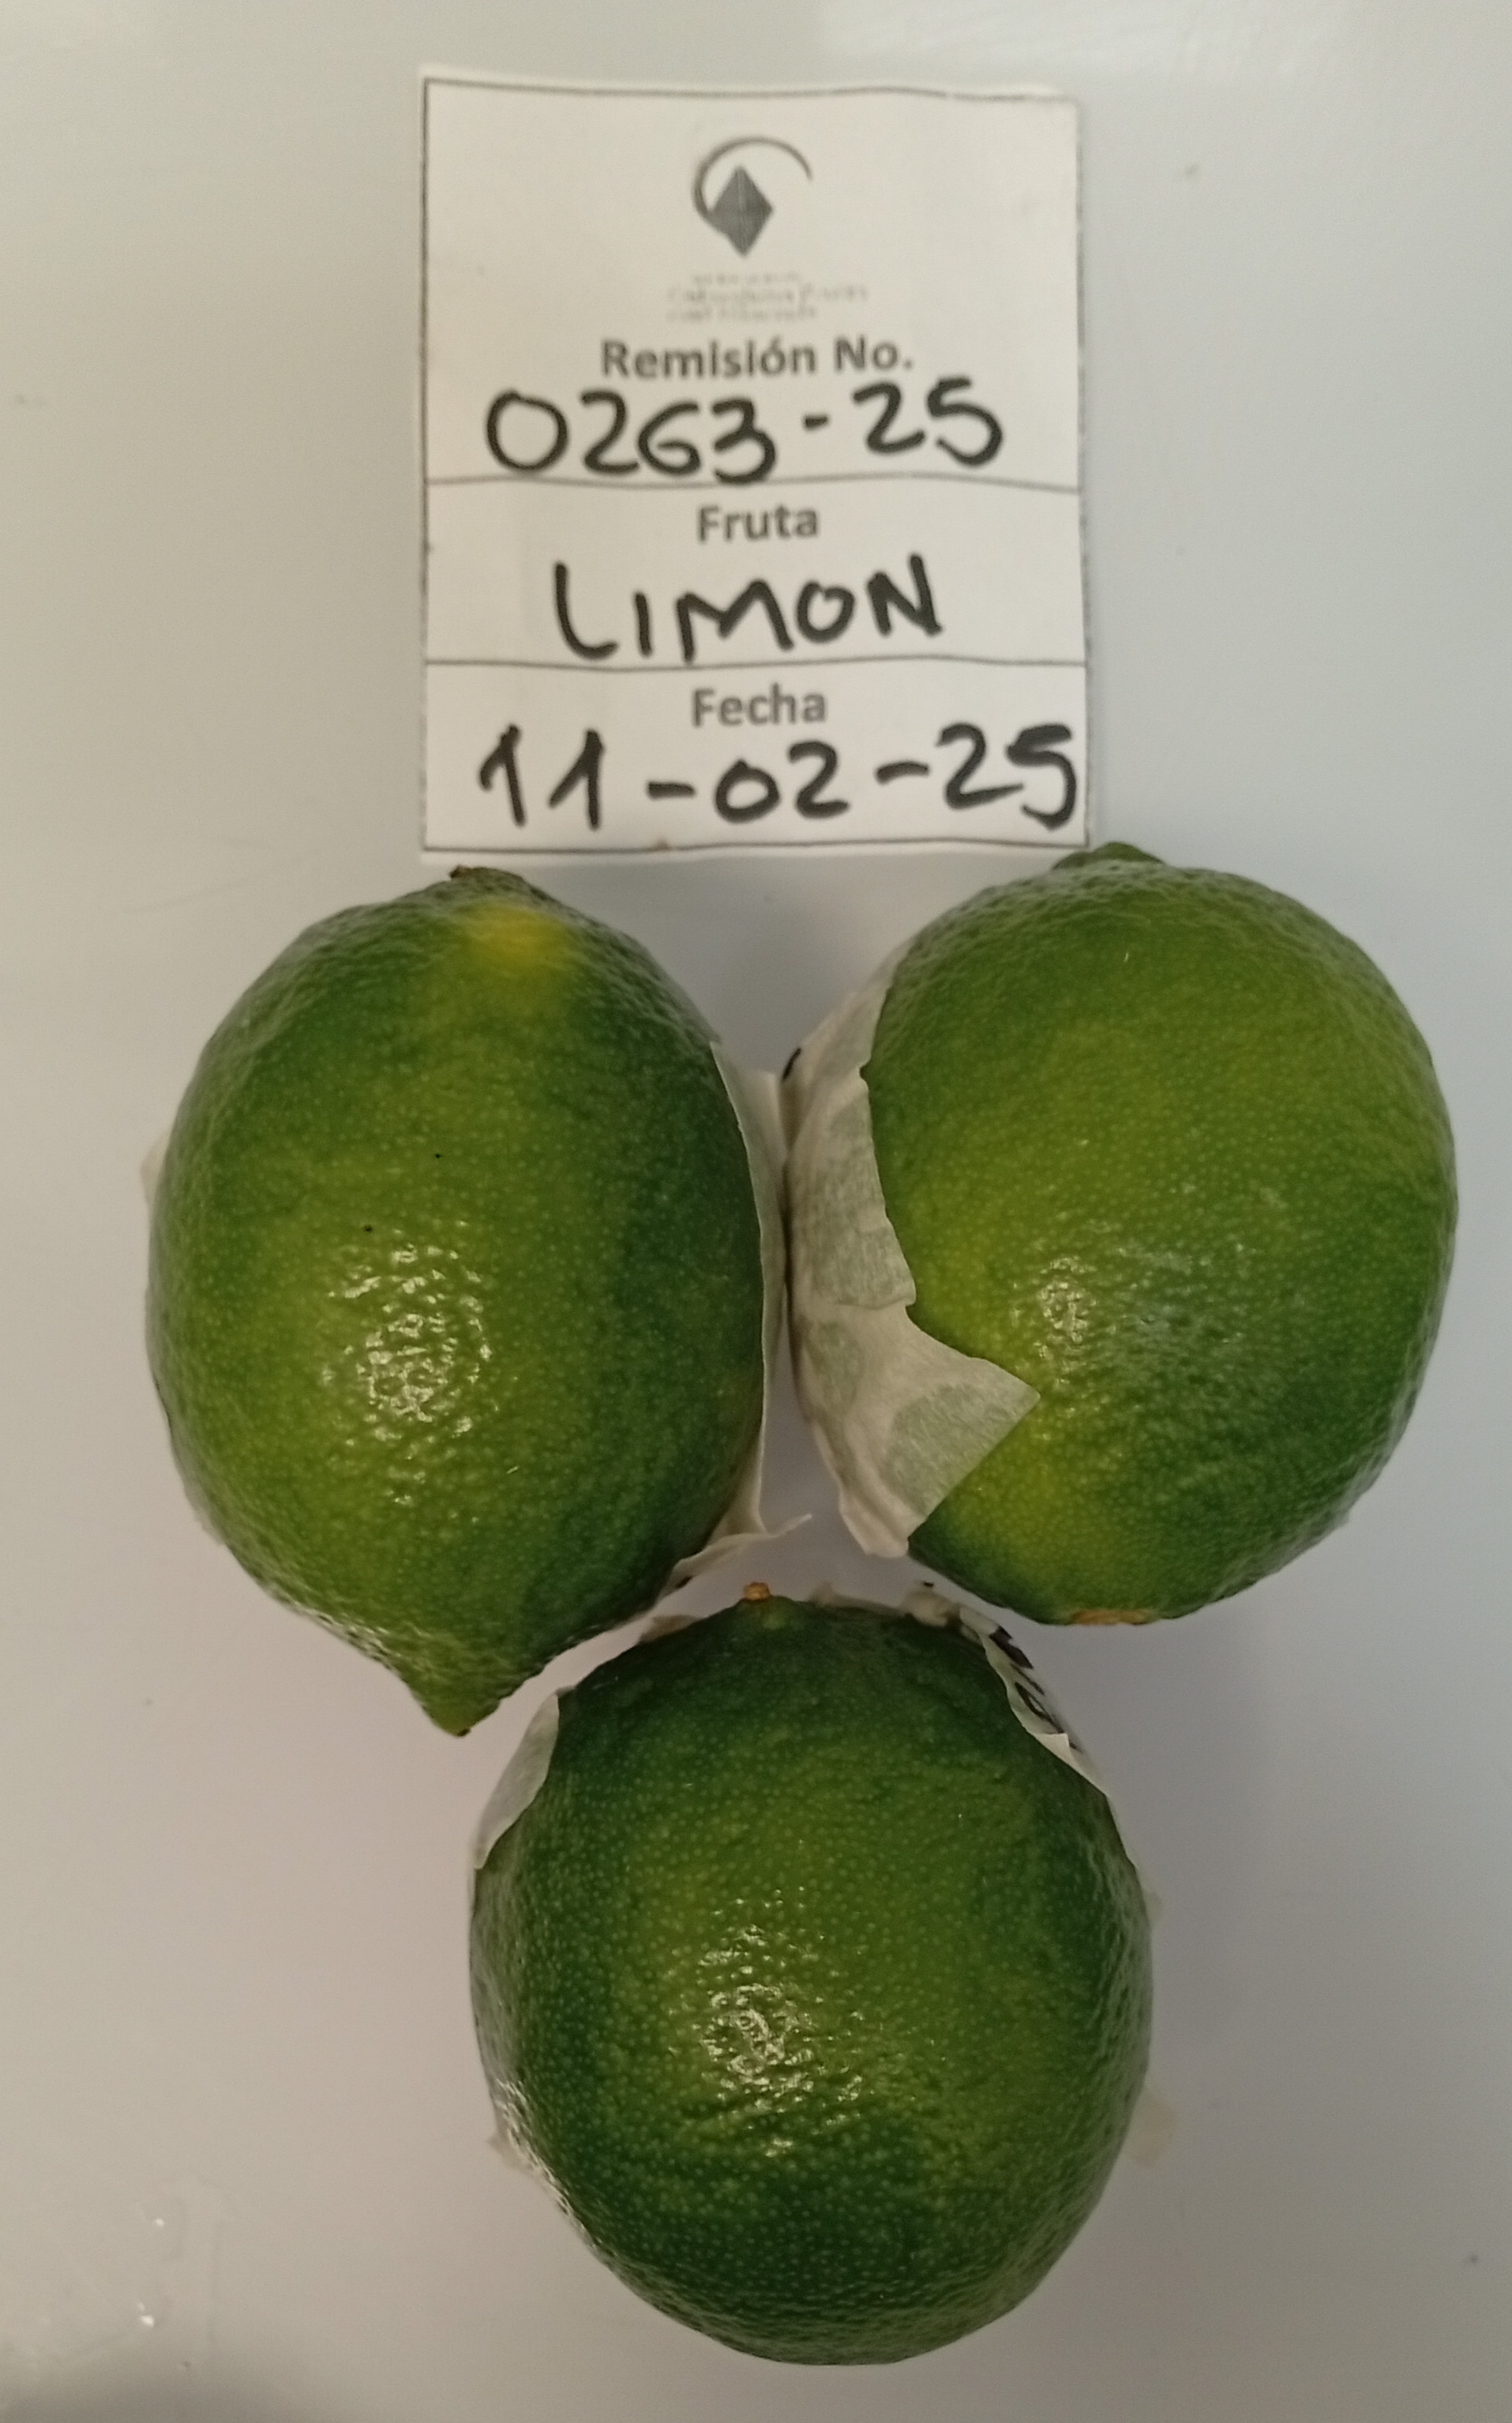 Remisión No.
0263-25
Fruta
LIMON
Fecha
11-02-25